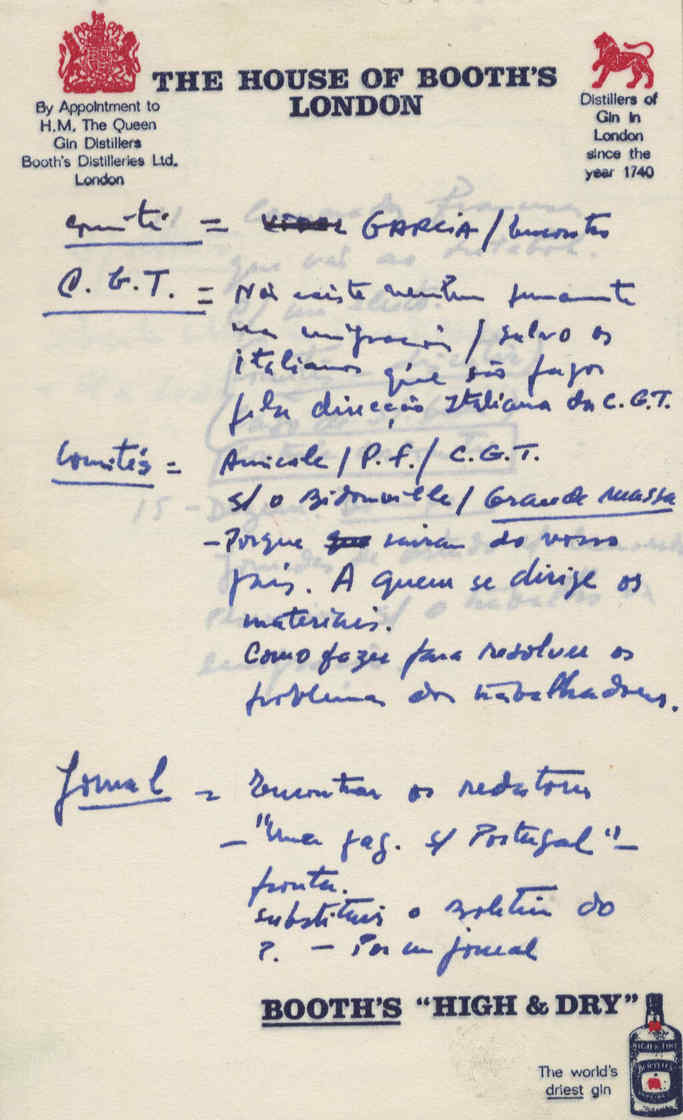 THE HOUSE OF BOOTH'S
LONDON
By Appointment to
H.M. The Queen
Gin Distillers
Booth's Distilleries Ltd.
London
Distillers of
Gin in
London
since the
year 1740
Comité = GARCIA /
C. G. T. = Não existe nenhum
na emigração / salvo os
italianos que são pagos
pela direcção Italiana da C.G.T.
Comités = Amicale / P.F. / C.G.T.
s/ o Bidonville / Grande massa
- Porque sairam do vosso
país. A quem se dirige os
materiais.
Como fazer para resolver os
problemas dos trabalhadores.
Jornal = Encontrar os redatores
- "Uma pag. s/ Portugal" -
pronta.
substituir o Boletim do
P. - Por um jornal
BOOTH'S "HIGH & DRY"
The world's
driest gin